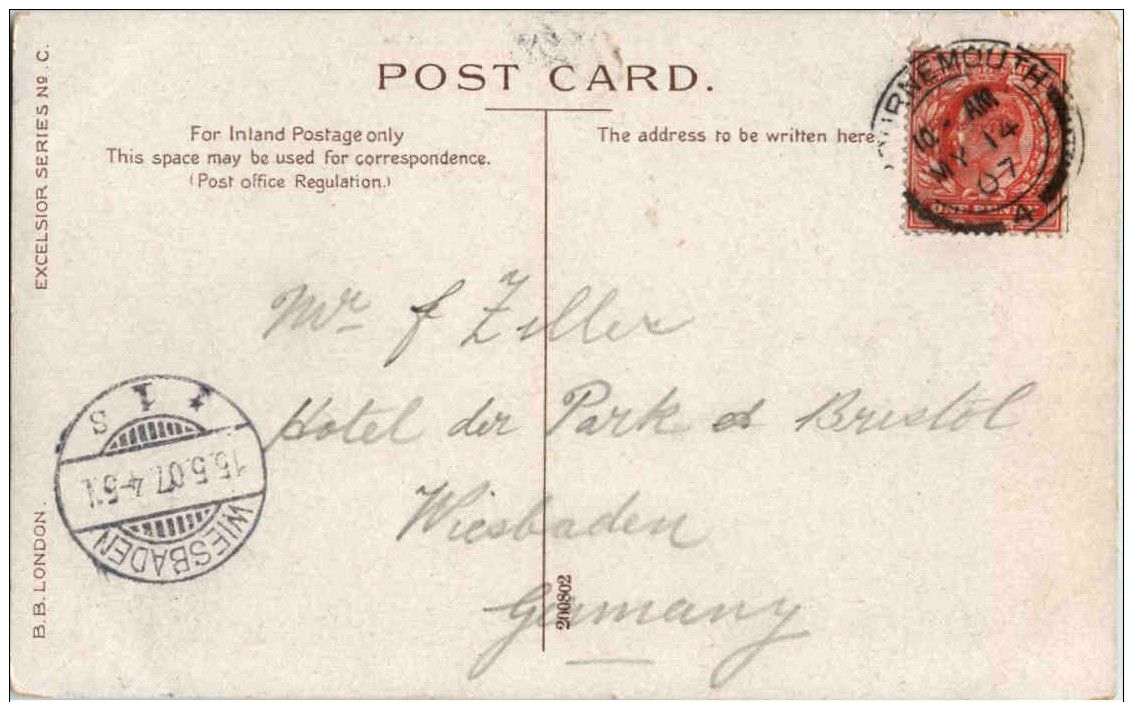 POST CARD.
For Inland Postage only
This space may be used for correspondence.
(Post office Regulation.)
The address to be written here
EXCELSIOR SERIES No C.
B.B. LONDON.
BOURNEMOUTH
10 - AM
MY 14
07
A
Mr f Ziller
Hotel der Park & Bristol
Wiesbaden
Germany
200802
WIESBADEN
15.5.07. 4-5N.
* 1 s